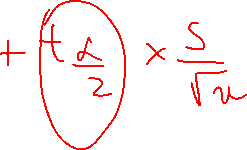 + t α/2 × S/√n